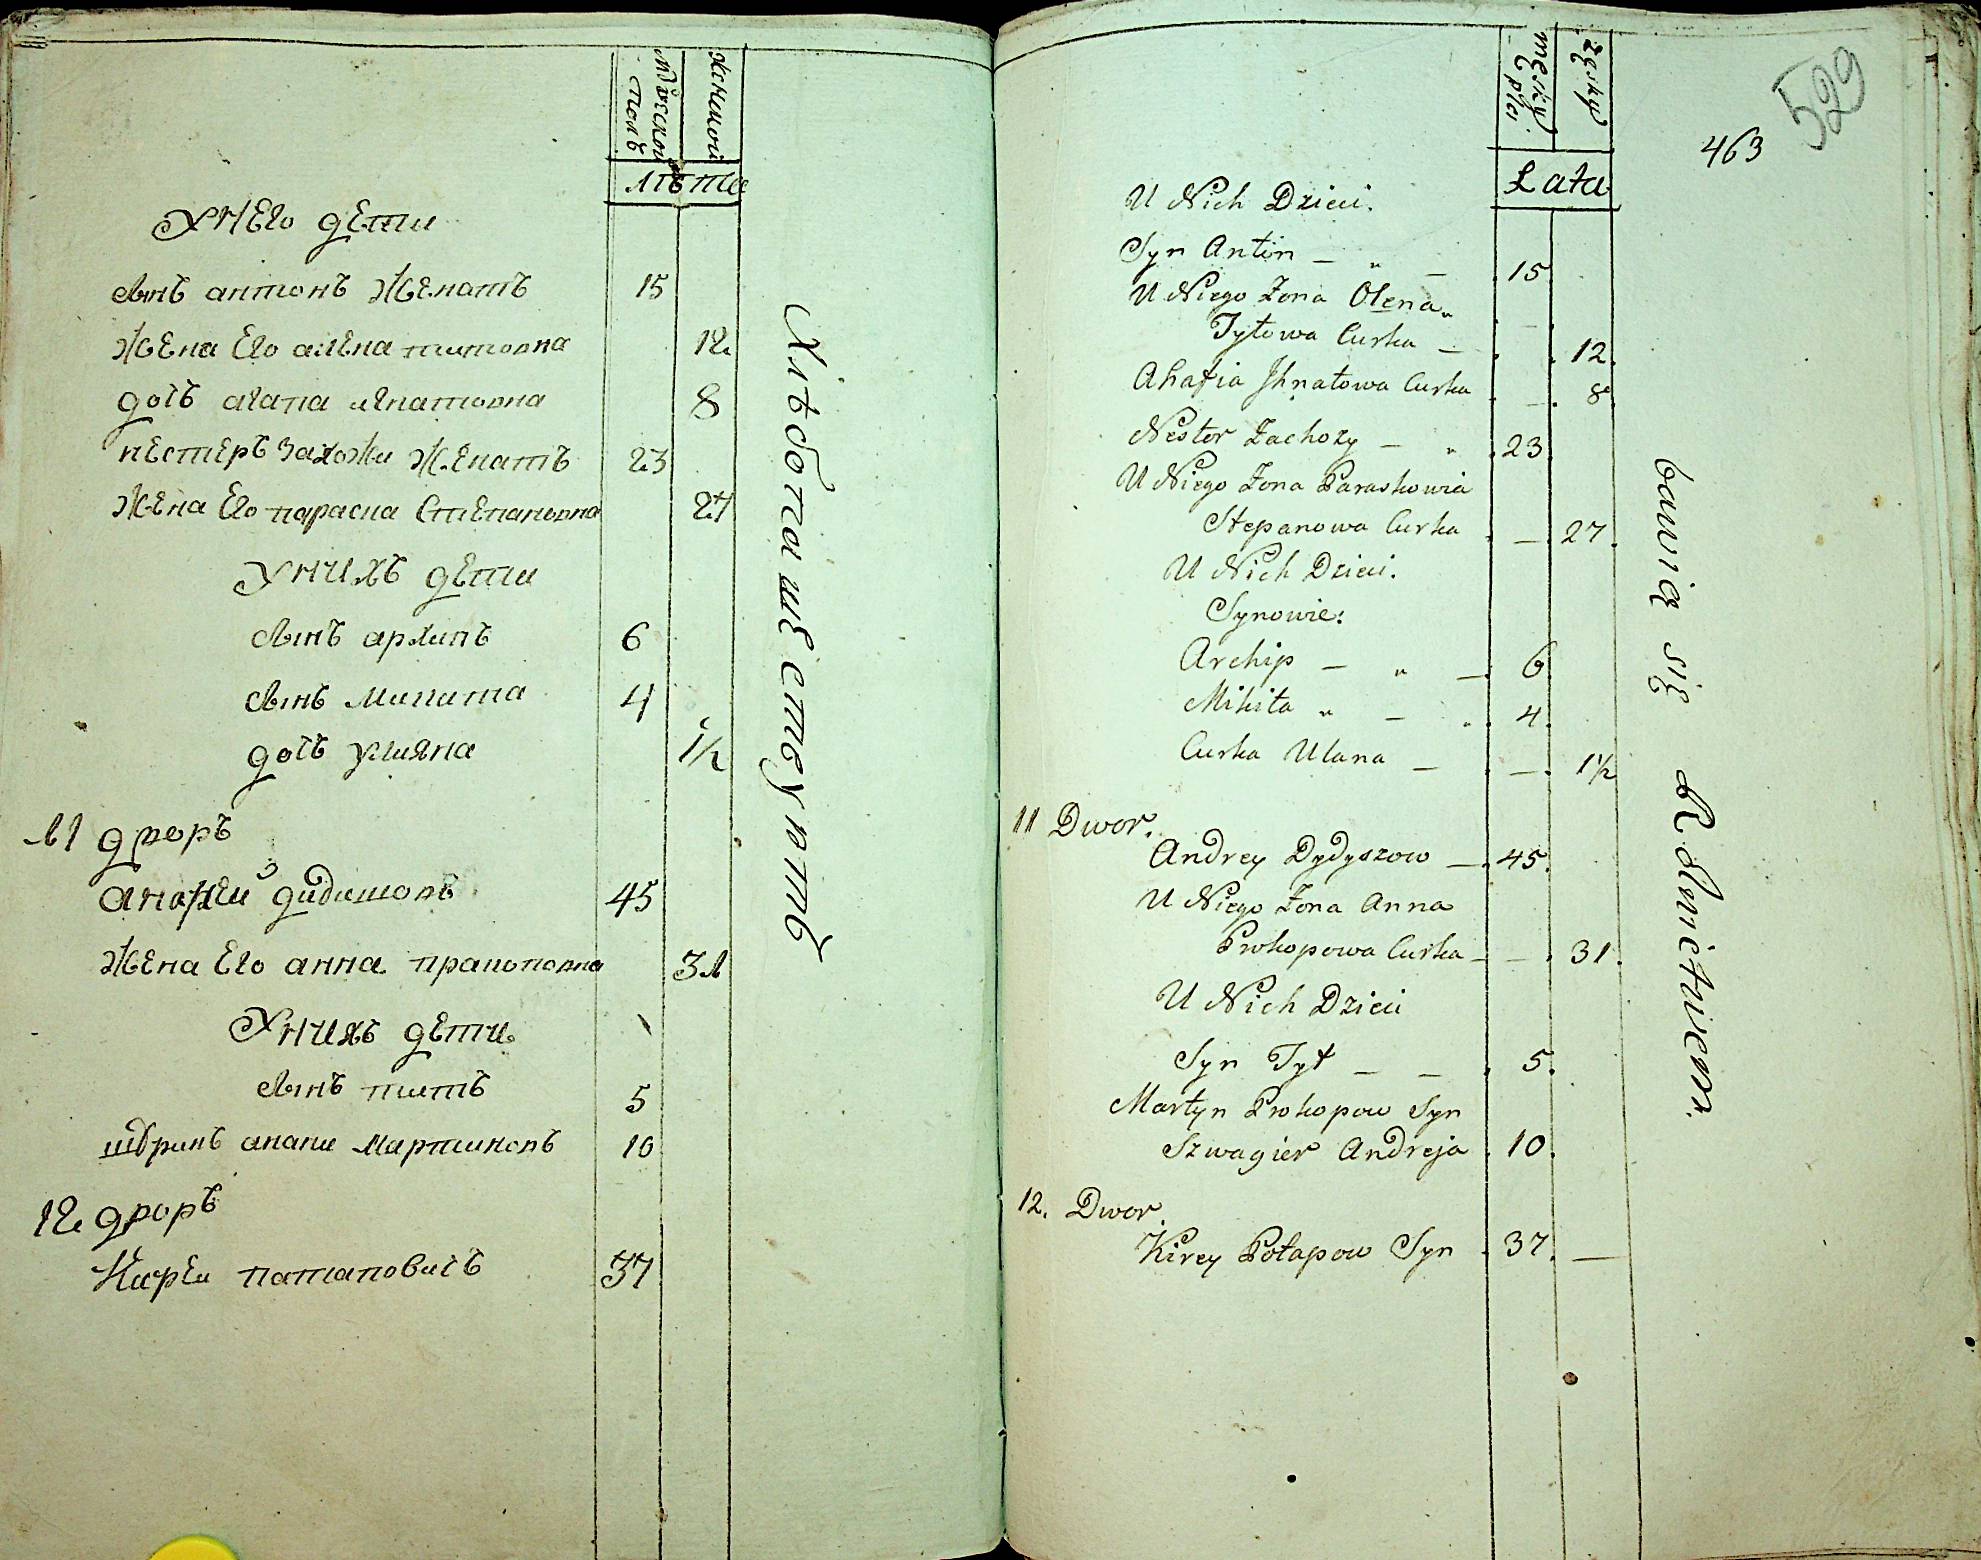 мужской полъ
женской
лѣта
У него дети
сынъ антонъ женатъ 15
жена Его алена титовна 12
дочь агапа игнатовна 8
нестеръ захожи женатъ 23
жена Его параска Степановна 27
У нихъ дети
сынъ архипъ 6
сынъ микита 4
дочь улияна 1½
11 дворъ
андрей дидишовъ 45
жена Его анна пракоповна 31
У нихъ дети
сынъ титъ 5
шбринъ Мартиновъ 10
12 дворъ
Кирей патаповичъ 37
Хлѣбопашествуютъ
męsky płci
żęsky
463
529
Lata
U Nich Dzieci.
Syn Antin — „ — 15
U Niego Żona Olena„
Tytowa Curka — 12.
Ahafia Ihnatowa Curka — 8
Nestor Zachoży — „ 23
U Niego Żona Paraskowia
Stepanowa Curka — 27.
U Nich Dzieci.
Synowie:
Archip — „ — 6
Mikita „ — „ 4.
Curka Ulana — — 1½
11 Dwor.
Andrey Dydyszow — 45.
U Niego Żona Anna
Prokopowa Curka — — 31.
U Nich Dzieci
Syn Tyt — — 5.
Martyn Prokopow Syn
Szwagier Andreja 10.
12. Dwor.
Kirey Potapow Syn 37. —
bawią się Rolnictwem.